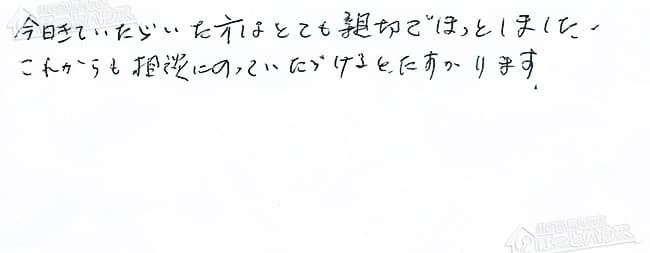 今日きていただいた方はとても親切でほっとしました。
これからも相談にのっていただけると、たすかります.